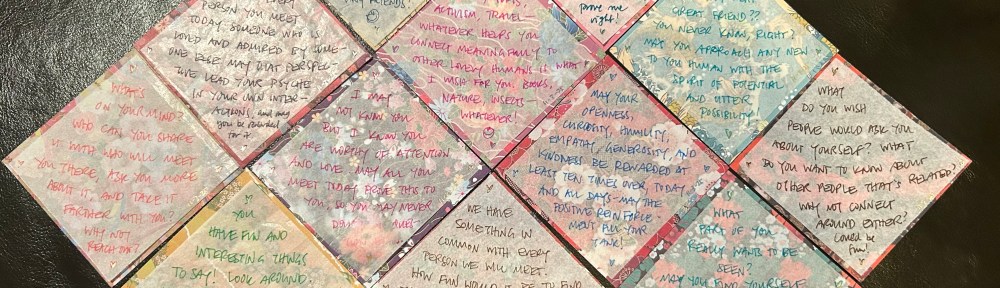 PERSON YOU MEET
TODAY, SOMEONE WHO IS
LOVED AND ADMIRED BY SOME-
ONE ELSE. MAY THAT PERSPEC-
TIVE LEAD YOUR PSYCHE
IN YOUR OWN INTER-
ACTIONS, and may
you be rewarded
for it
MY FRIENDS!
ACTIVISM, TRAVEL—
WHATEVER HELPS YOU
CONNECT MEANINGFULLY TO
OTHER LOVELY HUMANS—IS WHAT
I WISH FOR YOU. BOOKS,
NATURE, INSECTS—
WHATEVER!
prove me
right!
GREAT FRIEND??
YOU NEVER KNOW, RIGHT?
MAY YOU APPROACH ANY NEW
TO YOU HUMAN WITH THE
SPIRIT OF POTENTIAL
AND UTTER
POSSIBILITY
WHAT'S
ON YOUR MIND?
WHO CAN YOU SHARE
IT WITH WHO WILL MEET
YOU THERE, ASK YOU MORE
ABOUT IT, AND TAKE IT
FARTHER WITH YOU?
WHY NOT
REACH OUT?
I MAY
NOT KNOW YOU
BUT I KNOW YOU
ARE WORTHY OF ATTENTION
AND LOVE. MAY ALL YOU
MEET TODAY PROVE THIS TO
YOU, SO YOU MAY NEVER
MAY YOUR
OPENNESS,
CURIOSITY, HUMILITY,
EMPATHY, GENEROSITY, AND
KINDNESS BE REWARDED AT
LEAST TEN TIMES OVER, TODAY
AND ALL DAYS—MAY THE
POSITIVE REINFORCE-
MENT FILL YOUR
TANK!
WHAT
DO YOU WISH
PEOPLE WOULD ASK YOU
ABOUT YOURSELF? WHAT
DO YOU WANT TO KNOW ABOUT
OTHER PEOPLE THAT'S RELATED?
WHY NOT CONNECT
AROUND EITHER?
Could be
fun!
YOU
HAVE FUN AND
INTERESTING THINGS
TO SAY! LOOK AROUND.
WE HAVE
SOMETHING IN
COMMON WITH EVERY
PERSON WE WILL MEET.
HOW FUN WOULD IT BE TO FIND
WHAT
PART OF YOU
REALLY WANTS TO BE
SEEN?
MAY YOU FIND YOURSELF